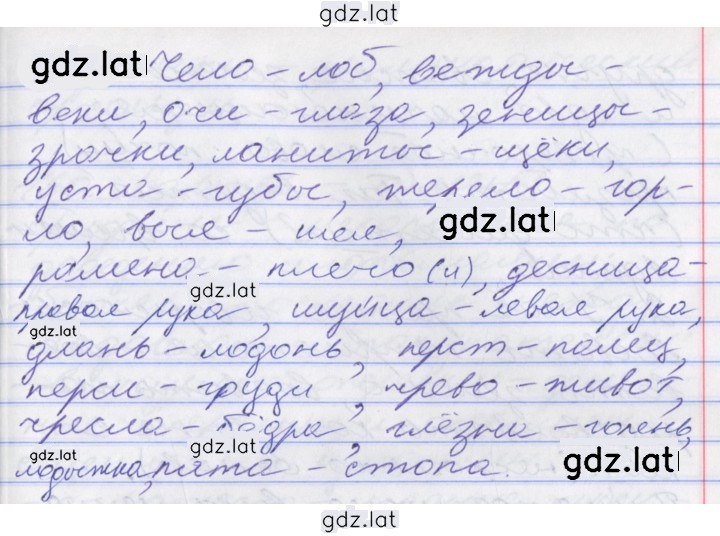 gdz.lat
gdz.lat Чело - лоб, вежды -
веки, очи - глаза, зеницы -
зрачки, ланиты - щёки,
уста - губы, жерело - гор-
ло, выя - шея, gdz.lat
рамена - плечо (и), десница -
gdz.lat
правая рука, шуйца - левая рука,
gdz.lat
длань - ладонь, перст - палец,
перси - груди, чрево - живот,
gdz.lat
чресла - бёдра, глёзна - голень,
gdz.lat
лодыжка, пята - стопа. gdz.lat
gdz.lat